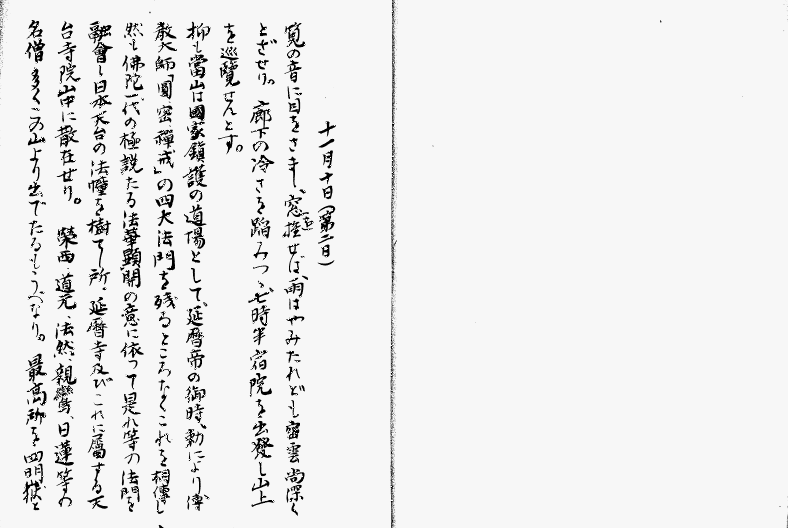 十一月十日(第二日)
筧の音に目をさまし、窓を推せば、雨はやみたれども密雲尚深く
とざせり。廊下の冷さを踏みつゝ、七時半宿院を出発し山上
を巡覧せんとす。
抑も當山は國家鎮護の道場として、延暦帝の御時、勅により傳
教大師「圓、密、禅、戒」の四大法門を残るところなくこれを相傳し
然も佛陀一代の極説たる法華顕開の意に依って是れ等の法門を
融會し日本天台の法幢を樹てし所、延暦寺及びこれに属する天
台寺院山中に散在せり。榮西、道元、法然、親鸞、日蓮等の
名僧多くこの山より出でたるもうべなり。最高所を四明嶽と